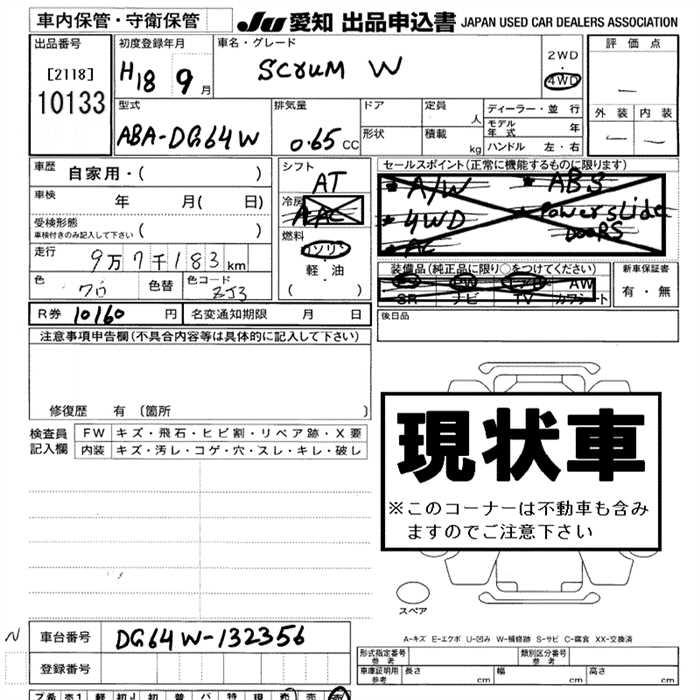 車内保管・守衛保管
JU 愛知 出品申込書 JAPAN USED CAR DEALERS ASSOCIATION
出品番号 初度登録年月 車名・グレード 2WD・4WD 評価点
[2118]
10133
H18 9月 SCRUM W
型式 排気量 ドア 定員 人 ディーラー・並行 外装 内装
ABA-DG64W 0.65 CC 形状 積載 kg モデル年式 年
ハンドル 左・右
車歴 自家用・( )
シフト AT
セールスポイント(正常に機能するものに限ります)
A/W ABS
4WD Power slide Doors
AC
車検 年 月( 日)
冷房 AAC
受検形態 ( )
車検付きのみ記入して下さい
燃料 ガソリン
軽・油
( )
走行 9万7千183km
装備品(純正品に限り○をつけてください) 新車保証書
AW
SR ナビ TV カワシート 有・無
色 色替 色コード ZJ3
R券 10160 円 名変通知期限 月 日
後日品
注意事項申告欄(不具合内容等は具体的に記入して下さい)
修復歴 有 (箇所 )
検査員記入欄 FW キズ・飛石・ヒビ割・リペア跡・X要
内装 キズ・汚レ・コゲ・穴・スレ・キレ・破レ
現状車
※このコーナーは不動車も含み
ますのでご注意下さい
スペア
A-キズ E-エクボ U-凹み W-補修跡 S-サビ C-腐食 XX-交換済
N 車台番号 DG64W-132356
登録番号
形式指定番号 参考 類別区分番号 参考
車庫証明用 参考 長さ cm 幅 cm 高さ cm